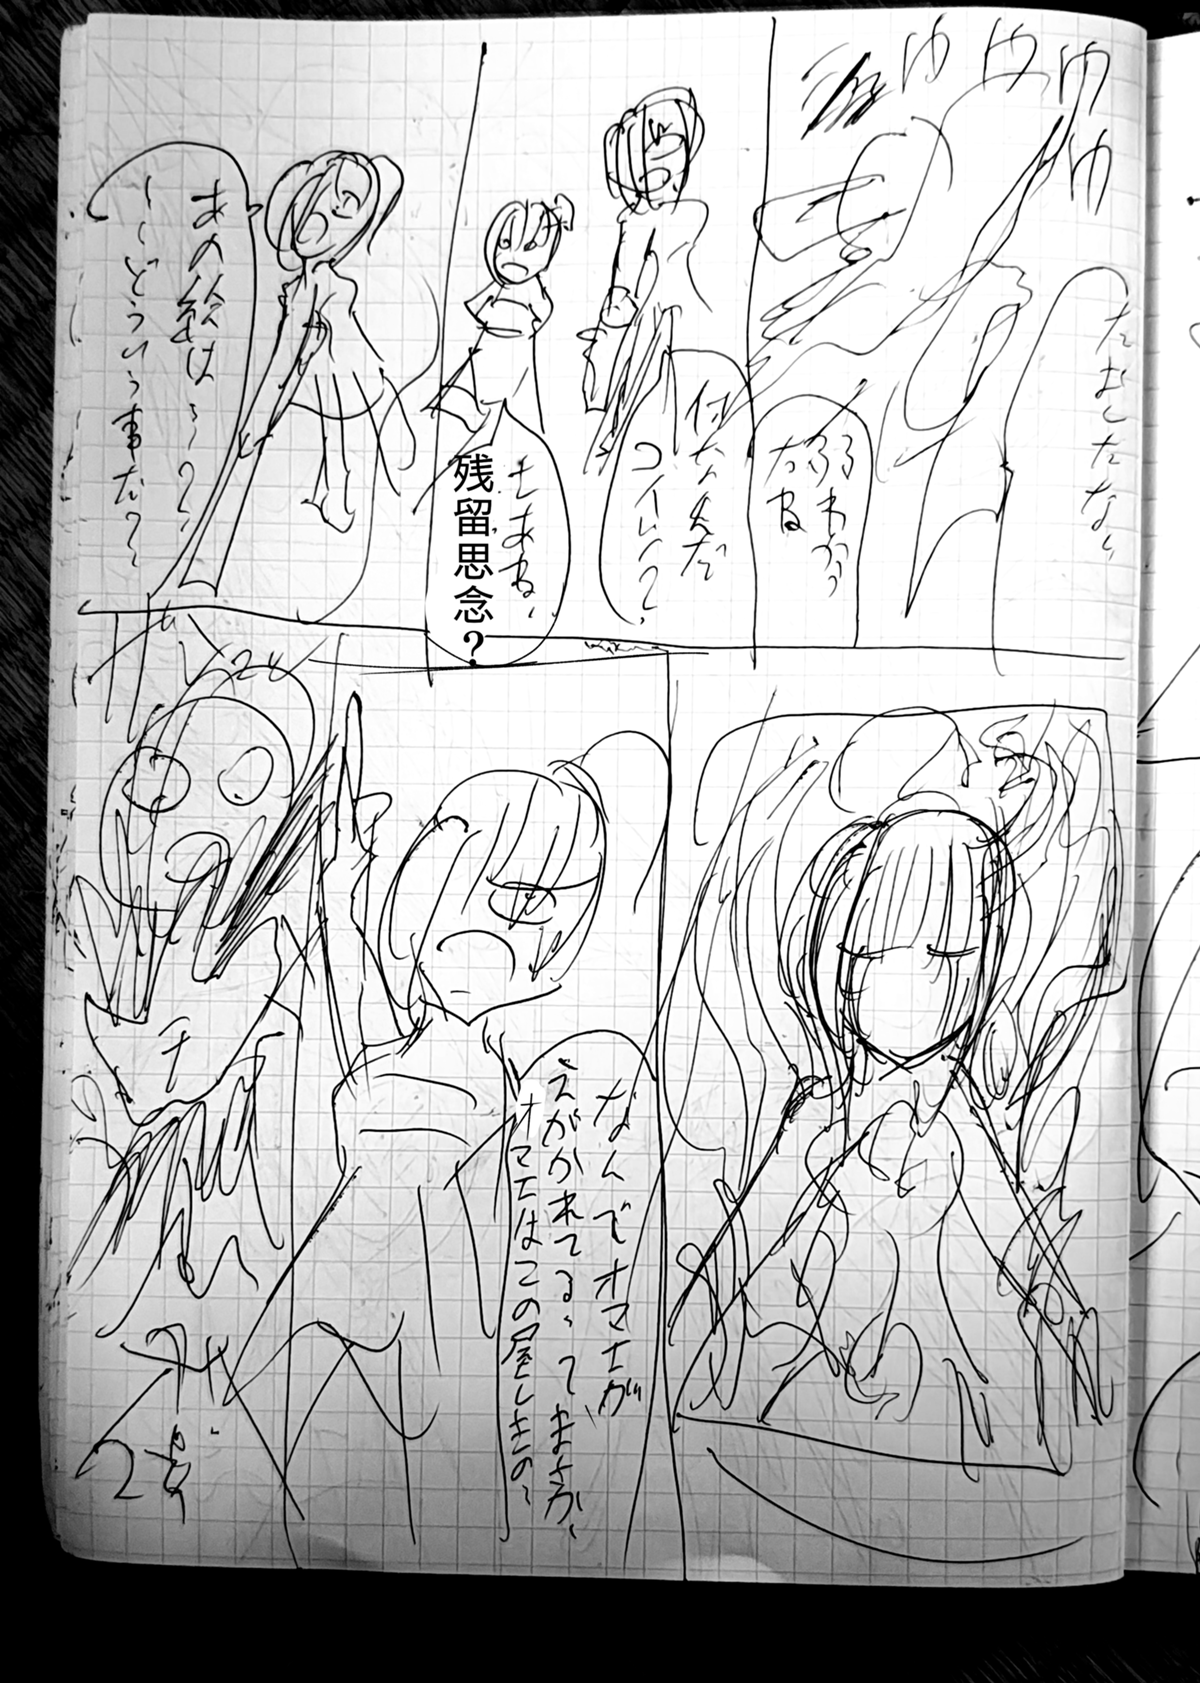 ゆゆゆゆ
たおしたな、
弱わかっ
たね
何なんだ
コイツ?
さあね、
残留思念?
あの絵は…?
どういう事だ?
なんでオマエが
えがかれてる、てまさか、
オマエはこの屋しきの
チ
2巻